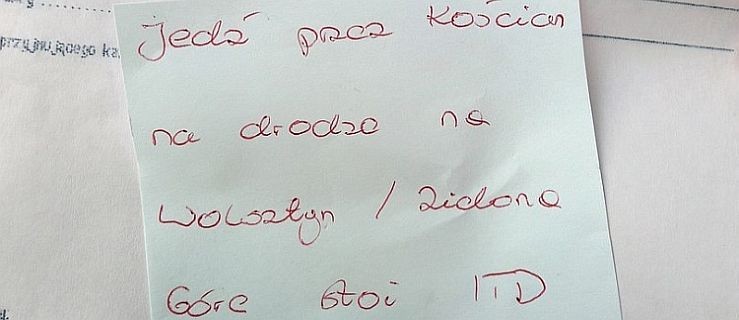 y ..........
przyjmującego ka
Jedź przez Kościan
na drodze na
Wolsztyn / Zielona
Górę stoi ITD